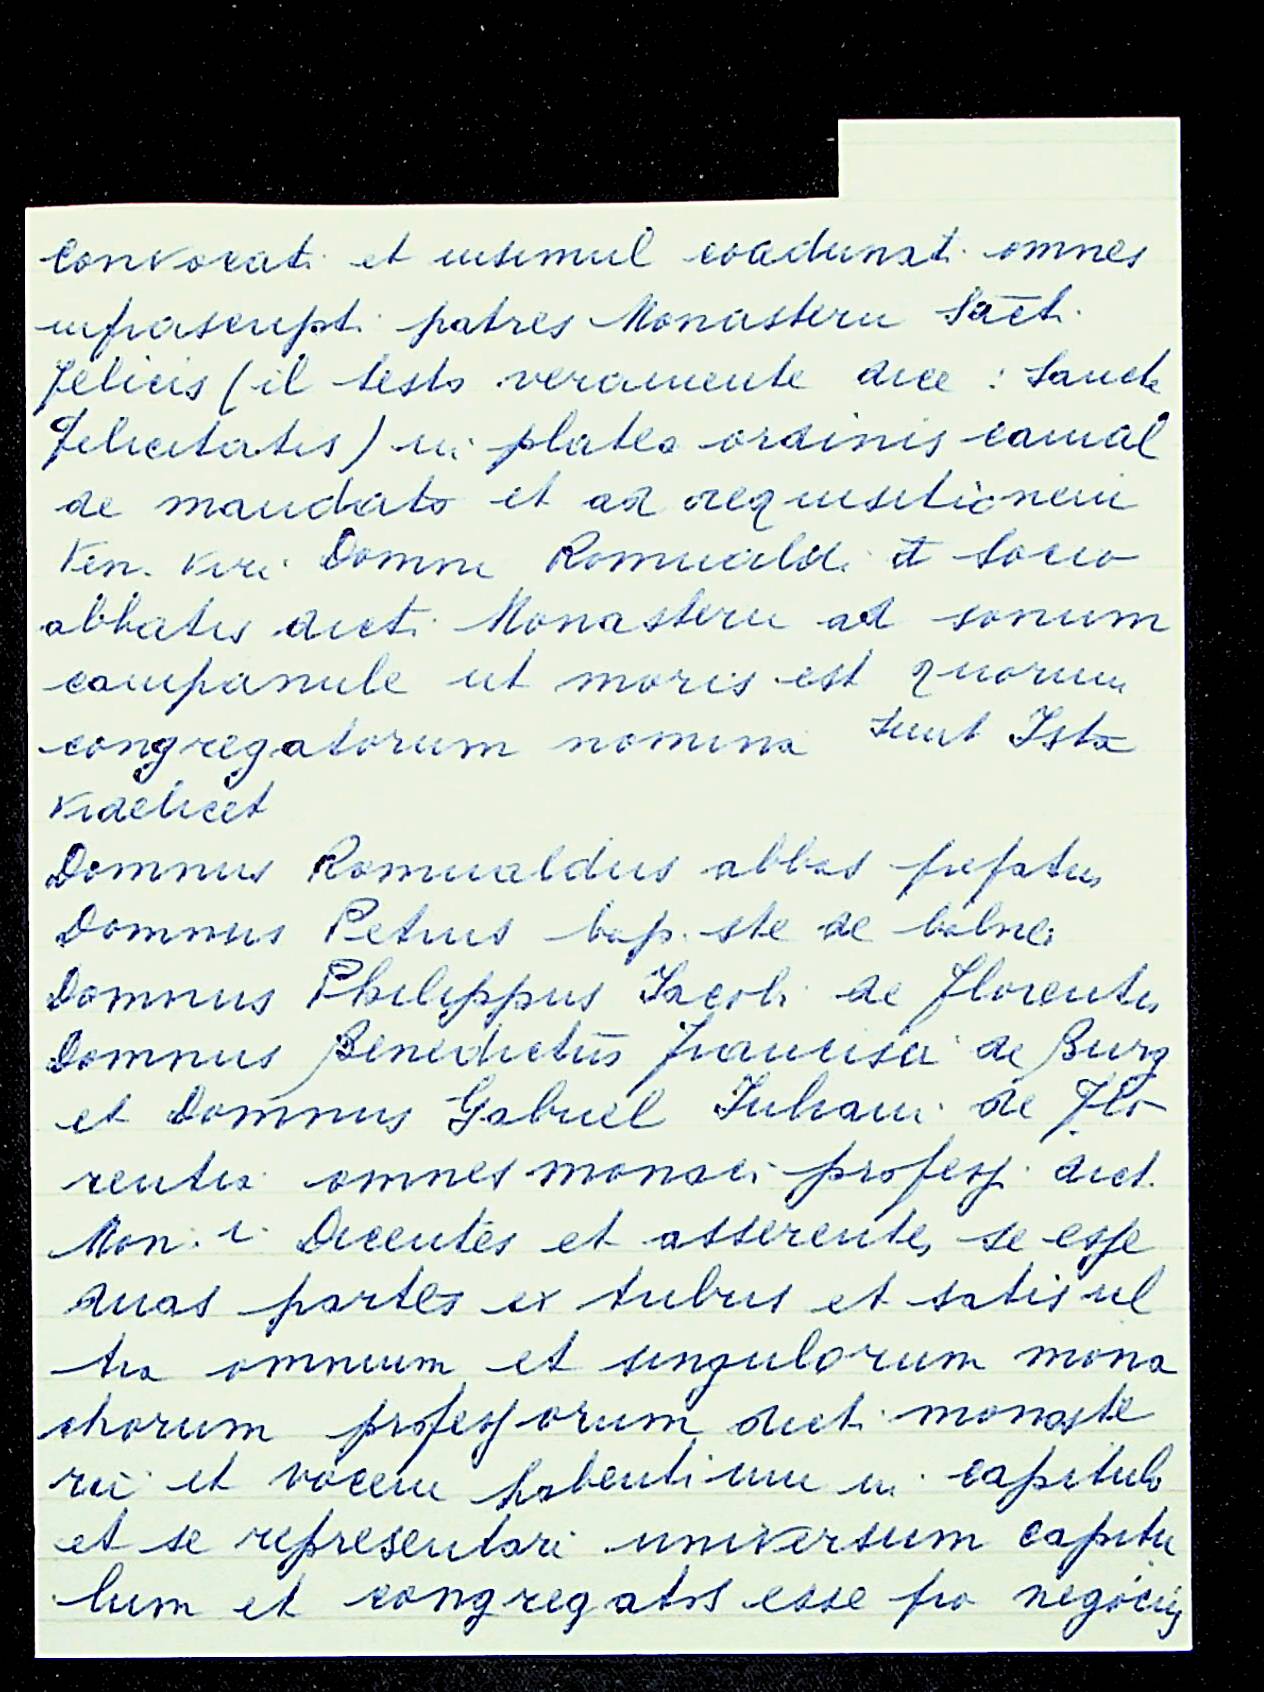 convocati et insimul coadunati omnes
infrascripti patres Monasterii Sāct.
felicis (il testo veramente dice : Sancte
felicitatis) in platea ordinis camal
de mandato et ad requisitionem
Ven. Viri Domni Romualdi
abbatis dicti Monasterii ad sonum
campanule ut moris est quorum
congregatorum nomina sunt Ista
videlicet
Domnus Romualdus abbas prefatus
Domnus Petrus bap.ste de balnei
Domnus Philippus Iacobi de florentia
Domnus Benedictus francisci de Burg
et Domnus Gabriel Iuliani de flo-
rentia omnes monaci professi dict.
Mon. i Dicentes et asserentes se esse
duas partes ex tribus et satis ul
tra omnium et singulorum mona
chorum professorum dicti monaste
rii et vocem habentium in capitulo
et se representari universum capitu
lum et congregatos esse pro negociis